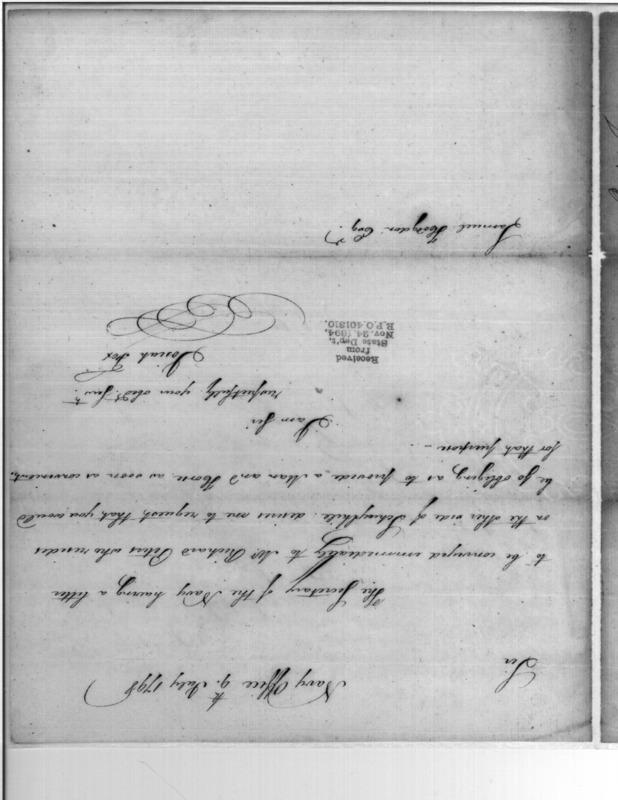 Navy Office 9th July 1798
Sir
The Secretary of the Navy having a letter
to be conveyed immediately to Mr Richard Peters who resides
on the other side of Schuylkill desires me to request that you would
be so obliging as to provide a Man and Horse as soon as convenient,
for that purpose —
I am Sir
respectfully your obed. Servt.
Josiah Fox
Received
from
State Dep't.
Nov. 24, 1894.
R.P.O. 401810.
Samuel Hodgdon Esqr.